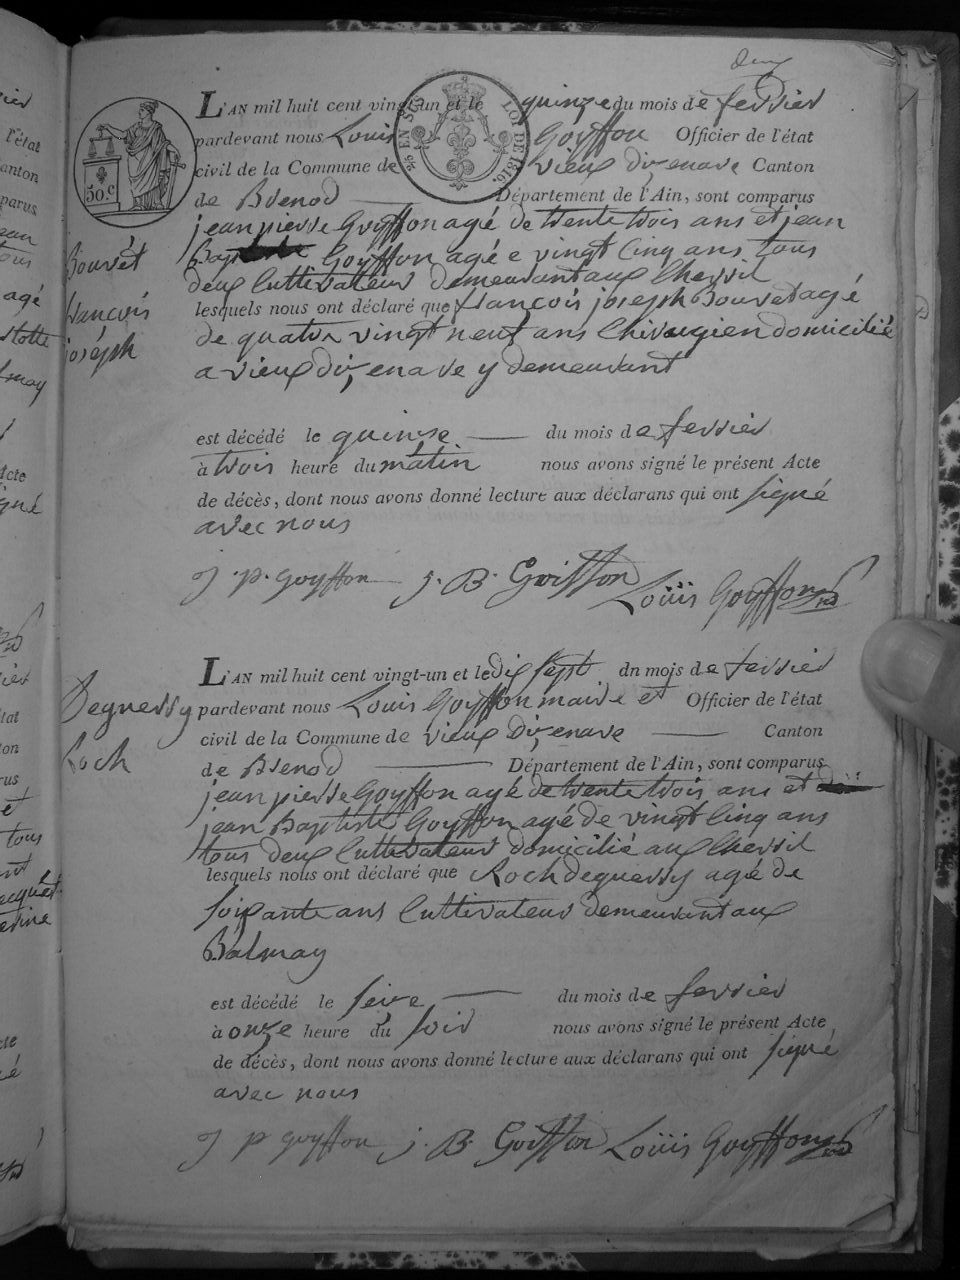 deux
L'AN mil huit cent vingt-un et le quinze du mois de fevrier
pardevant nous Louis Goyffon Officier de l'état
civil de la Commune de vieux dizenave Canton
de Brenod Département de l'Ain, sont comparus
jean pierre Goyffon agé de trente trois ans et jean
Baptiste Goyffon agé e vingt cinq ans tous
deux Cultivateur demeurant aux Chevril
lesquels nous ont déclaré que francois joseph Bouvet agé
de quatre vingt neuf ans Chirurgien domicilié
a vieux dizenave y demeurant
Bouvet
francois
joséph
est décédé le quinze du mois de fevrier
à trois heure du matin nous avons signé le présent Acte
de décès, dont nous avons donné lecture aux déclarans qui ont signé
avec nous
J. p. goyffon J. B. Goiffon Louis Goyffon
50.c
25 EN SUS
LOI DE 1816.
L'AN mil huit cent vingt-un et le dix sept dn mois de fevrier
pardevant nous Louis Goyffon maire et Officier de l'état
civil de la Commune de vieux dizenave Canton
de Brenod Département de l'Ain, sont comparus
jean pierre Goyffon agé de trente trois ans et
jean Baptiste Goyffon agé de vingt Cinq ans
tous deux Cultivateur domicilié aux Chevril
lesquels nous ont déclaré que Roch deguerry agé de
soixante ans Cultivateur demeurant aux
Balmay
Deguerry
Roch
est décédé le seize du mois de fevrier
à onze heure du soir nous avons signé le présent Acte
de décès, dont nous avons donné lecture aux déclarans qui ont signé
avec nous
J p goyffon j. B. Goiffon Louis Goyffon